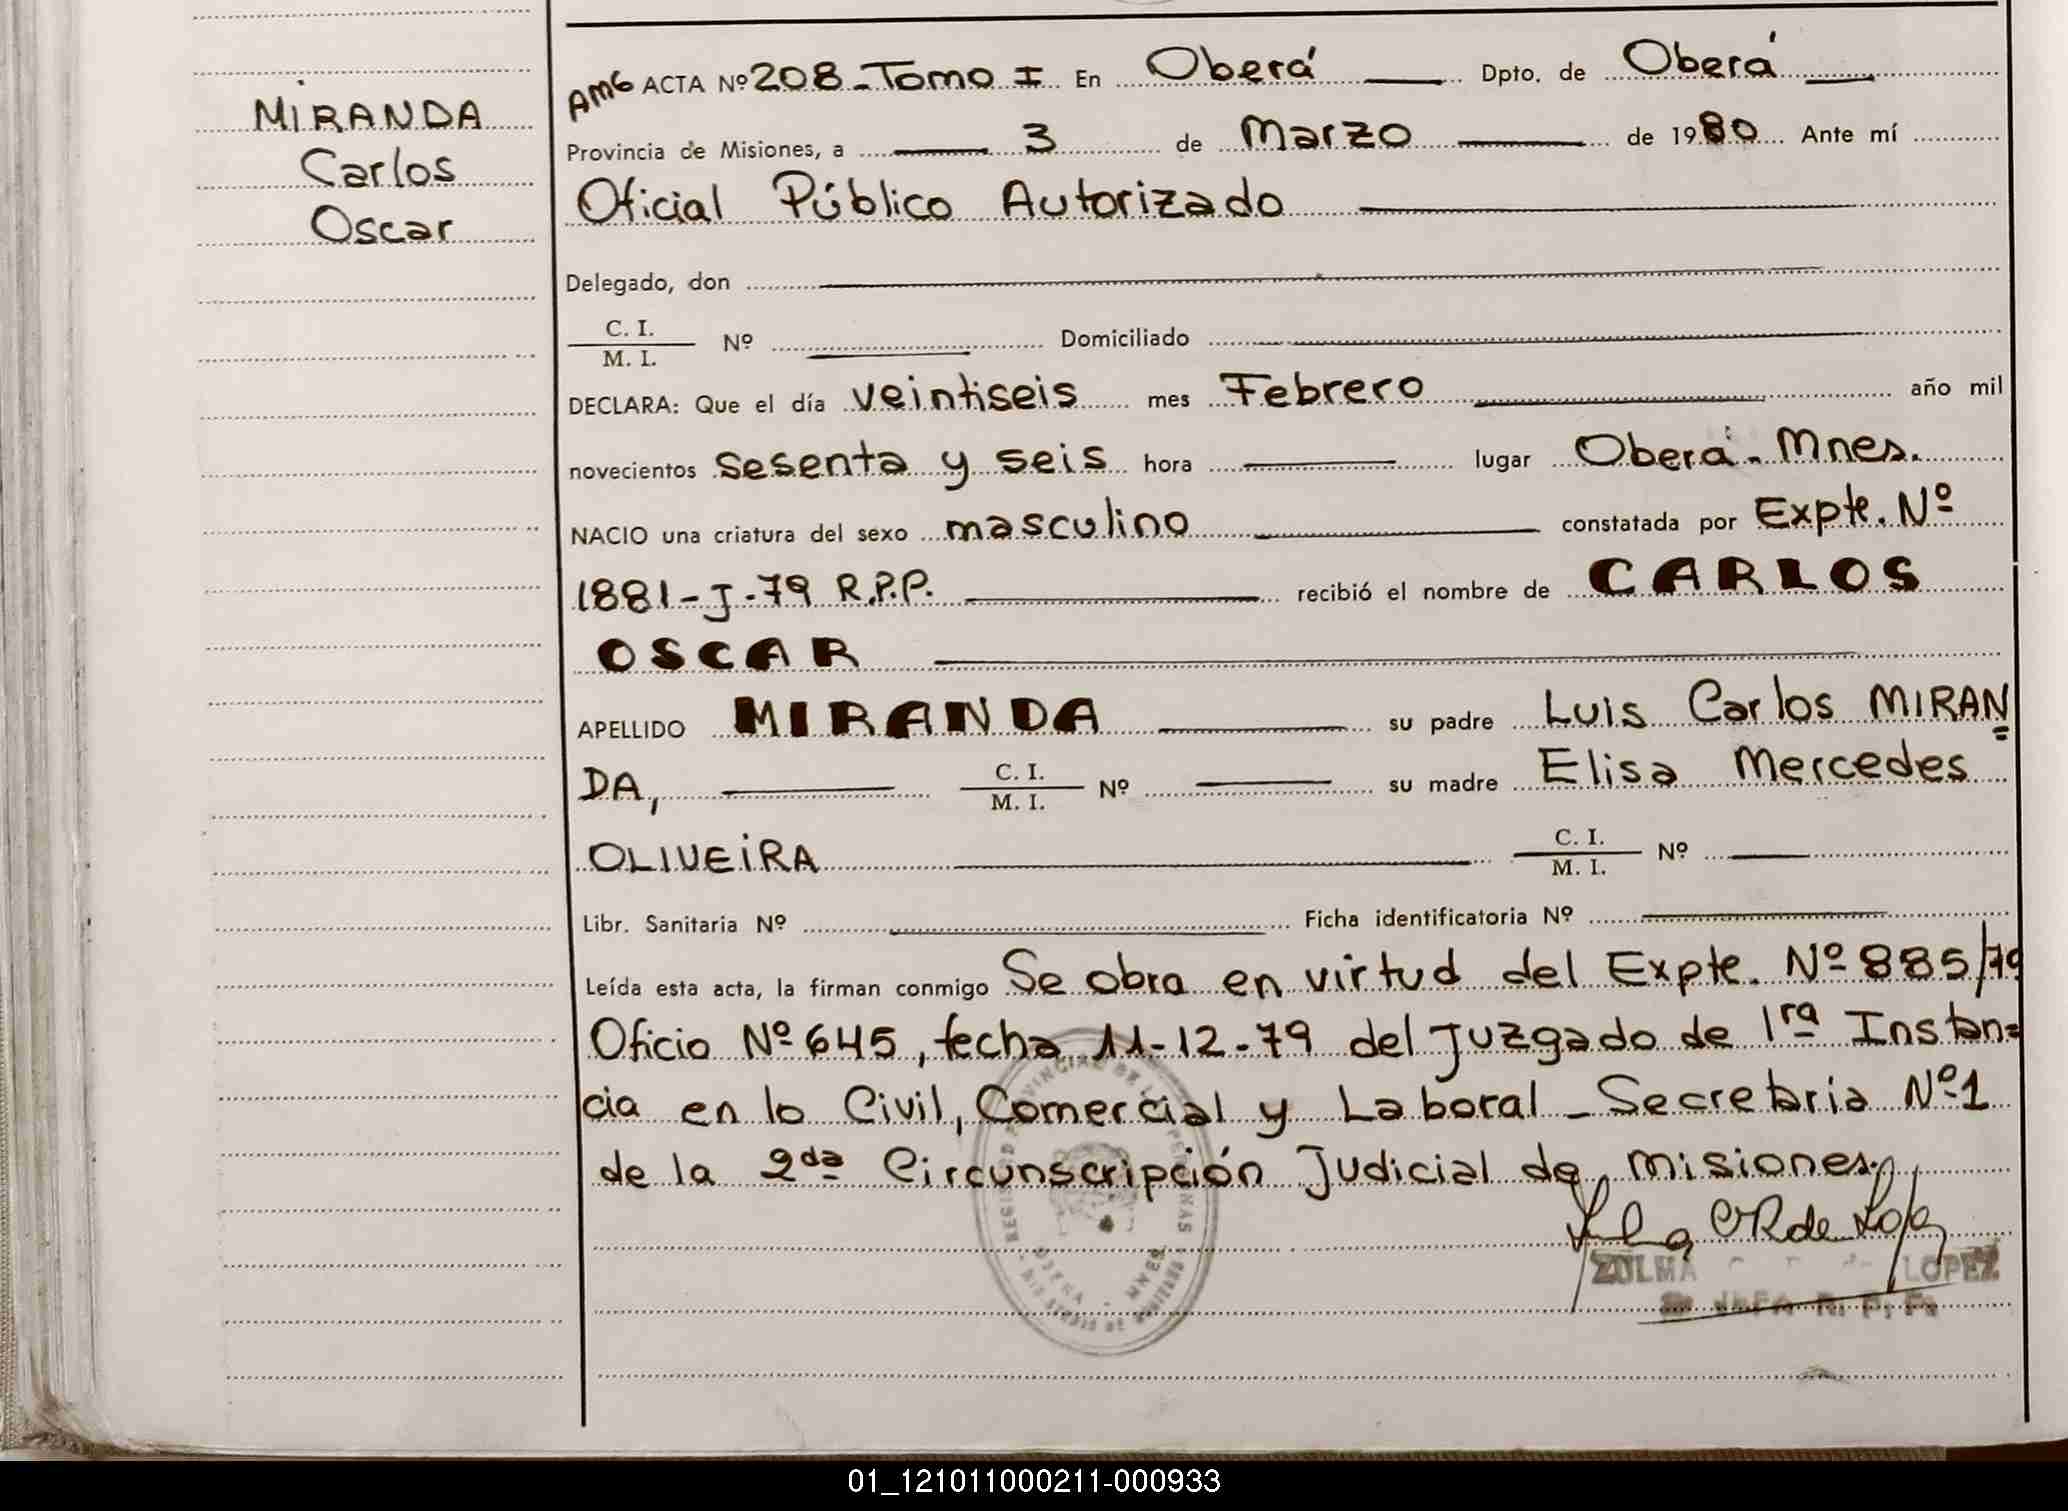 MIRANDA
Carlos
Oscar
AMG ACTA Nº 208 - Tomo I En Oberá Dpto. de Oberá
Provincia de Misiones, a 3 de Marzo de 1980 Ante mí
Oficial Público Autorizado
Delegado, don
C. I.
M. I. Nº Domiciliado
DECLARA: Que el día veintiseis mes Febrero año mil
novecientos sesenta y seis hora lugar Oberá - Mnes.
NACIO una criatura del sexo masculino constatada por Expte. Nº
1881-J-79 R.P.P. recibió el nombre de CARLOS
OSCAR
APELLIDO MIRANDA su padre Luis Carlos MIRAN=
DA, C. I. M. I. Nº su madre Elisa Mercedes
OLIVEIRA C. I. M. I. Nº
Libr. Sanitaria Nº Ficha identificatoria Nº
Leída esta acta, la firman conmigo Se obra en virtud del Expte. Nº 885/79
Oficio Nº 645, fecha 11-12-79 del Juzgado de 1ra Instan=
cia en lo Civil, Comercial y Laboral - Secretaria Nº 1
de la 2da Circunscripción Judicial de Misiones.
ZULMA LOPEZ
JEFA R. P. P.
01_121011000211-000933